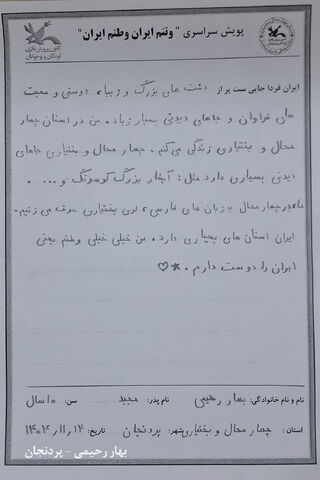 پویش سراسری " وتنم ایران وطنم ایران"
کانون پرورش فکری
کودکان و نوجوانان
ایران فردا جایی ست پر از دشت های بزرگ و زیبا، دوستی و محبت
های فراوان و جاهای دیدنی بسیار زیاد. من در استان چهار
محال و بختیاری زندگی می کنم. چهار محال و بختیاری جاهای
دیدنی بسیاری دارد مثل: آبشار بزرگ کوهرنگ و ... .
ما در چهار محال با زبان های فارسی، لری بختیاری حرف می زنیم.
ایران استان های بسیاری دارد. من خیلی خیلی وطنم یعنی
ایران را دوست دارم. ★♡
نام و نام خانوادگی: بهار رحیمی نام پدر: مجید سن: ۱۰ سال
استان: چهار محال و بختیاری شهر: پردنجان تاریخ: ۱۴۰۴/۱۱/۱۴
بهار رحیمی - پردنجان